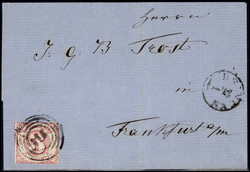 Herrn
J. G. B Trost
in
Frankfurt a/m
3